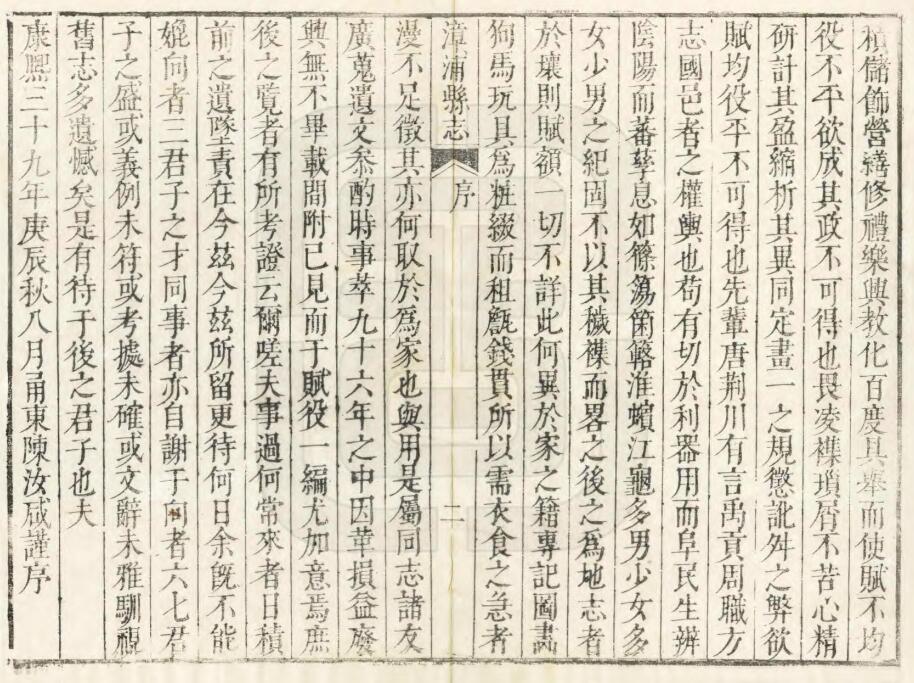 積儲飾營繕修禮樂興教化百度具舉而使賦不均
役不平欲成其政不可得也畏凌襍瑣屑不苦心精
研計其盈縮析其異同定畫一之規懲訛舛之弊欲
賦均役平不可得也先輩唐荆川有言禹貢周職方
志國邑者之權輿也苟有切於利器用而阜民生辨
陰陽而蕃孳息如篠簜箘簵淮蠙江龜多男少女多
女少男之紀固不以其穢襍而畧之後之爲地志者
於壤則賦額一切不詳此何異於家之籍專記圖畫
狗馬玩具爲粧綴而租甔錢貫所以需衣食之急者
漳浦縣志
序
二
漫不足徵其亦何取於爲家也與用是屬同志諸友
廣蒐遺文叅酌時事萃九十六年之中因革損益廢
興無不畢載間附已見而于賦役一編尤加意焉庶
後之覽者有所考證云爾嗟夫事過何常來者日積
前之遺墜責在今玆今玆所留更待何日余旣不能
媲向者三君子之才同事者亦自謝于向者六七君
子之盛或義例未符或考據未確或文辭未雅馴視
舊志多遺憾矣是有待于後之君子也夫
康熙三十九年庚辰秋八月甬東陳汝咸謹序